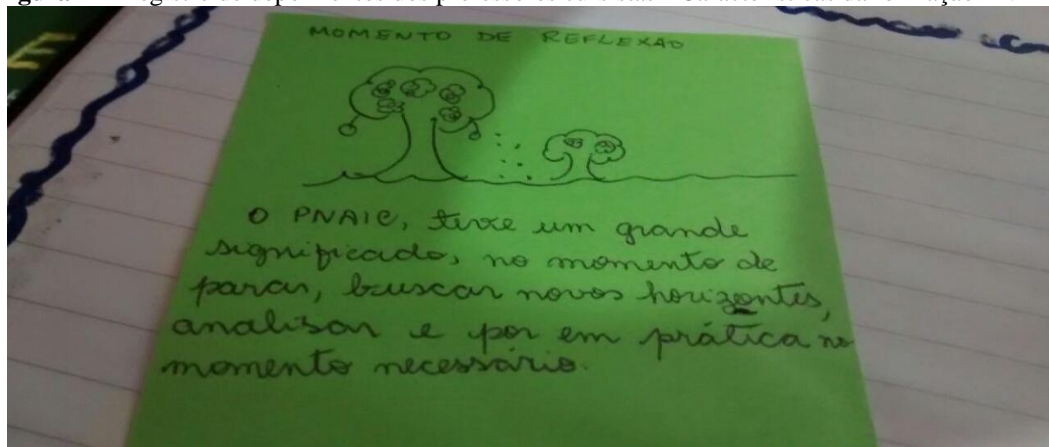 MOMENTO DE REFLEXAO
O PNAIC, teve um grande
significado, no momento de
parar, buscar novos horizontes,
analisar e por em prática no
momento necessário.